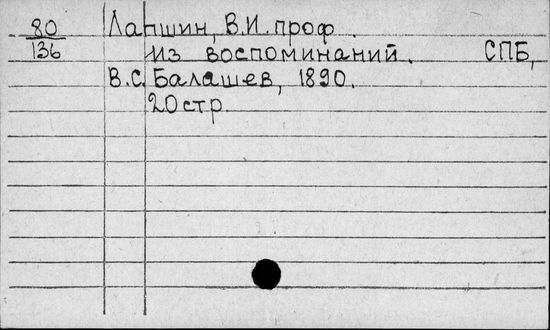 80 Лапшин, В.И. проф.
136 Из воспоминаний. СПБ,
В.С. Балашев, 1890.
20стр.